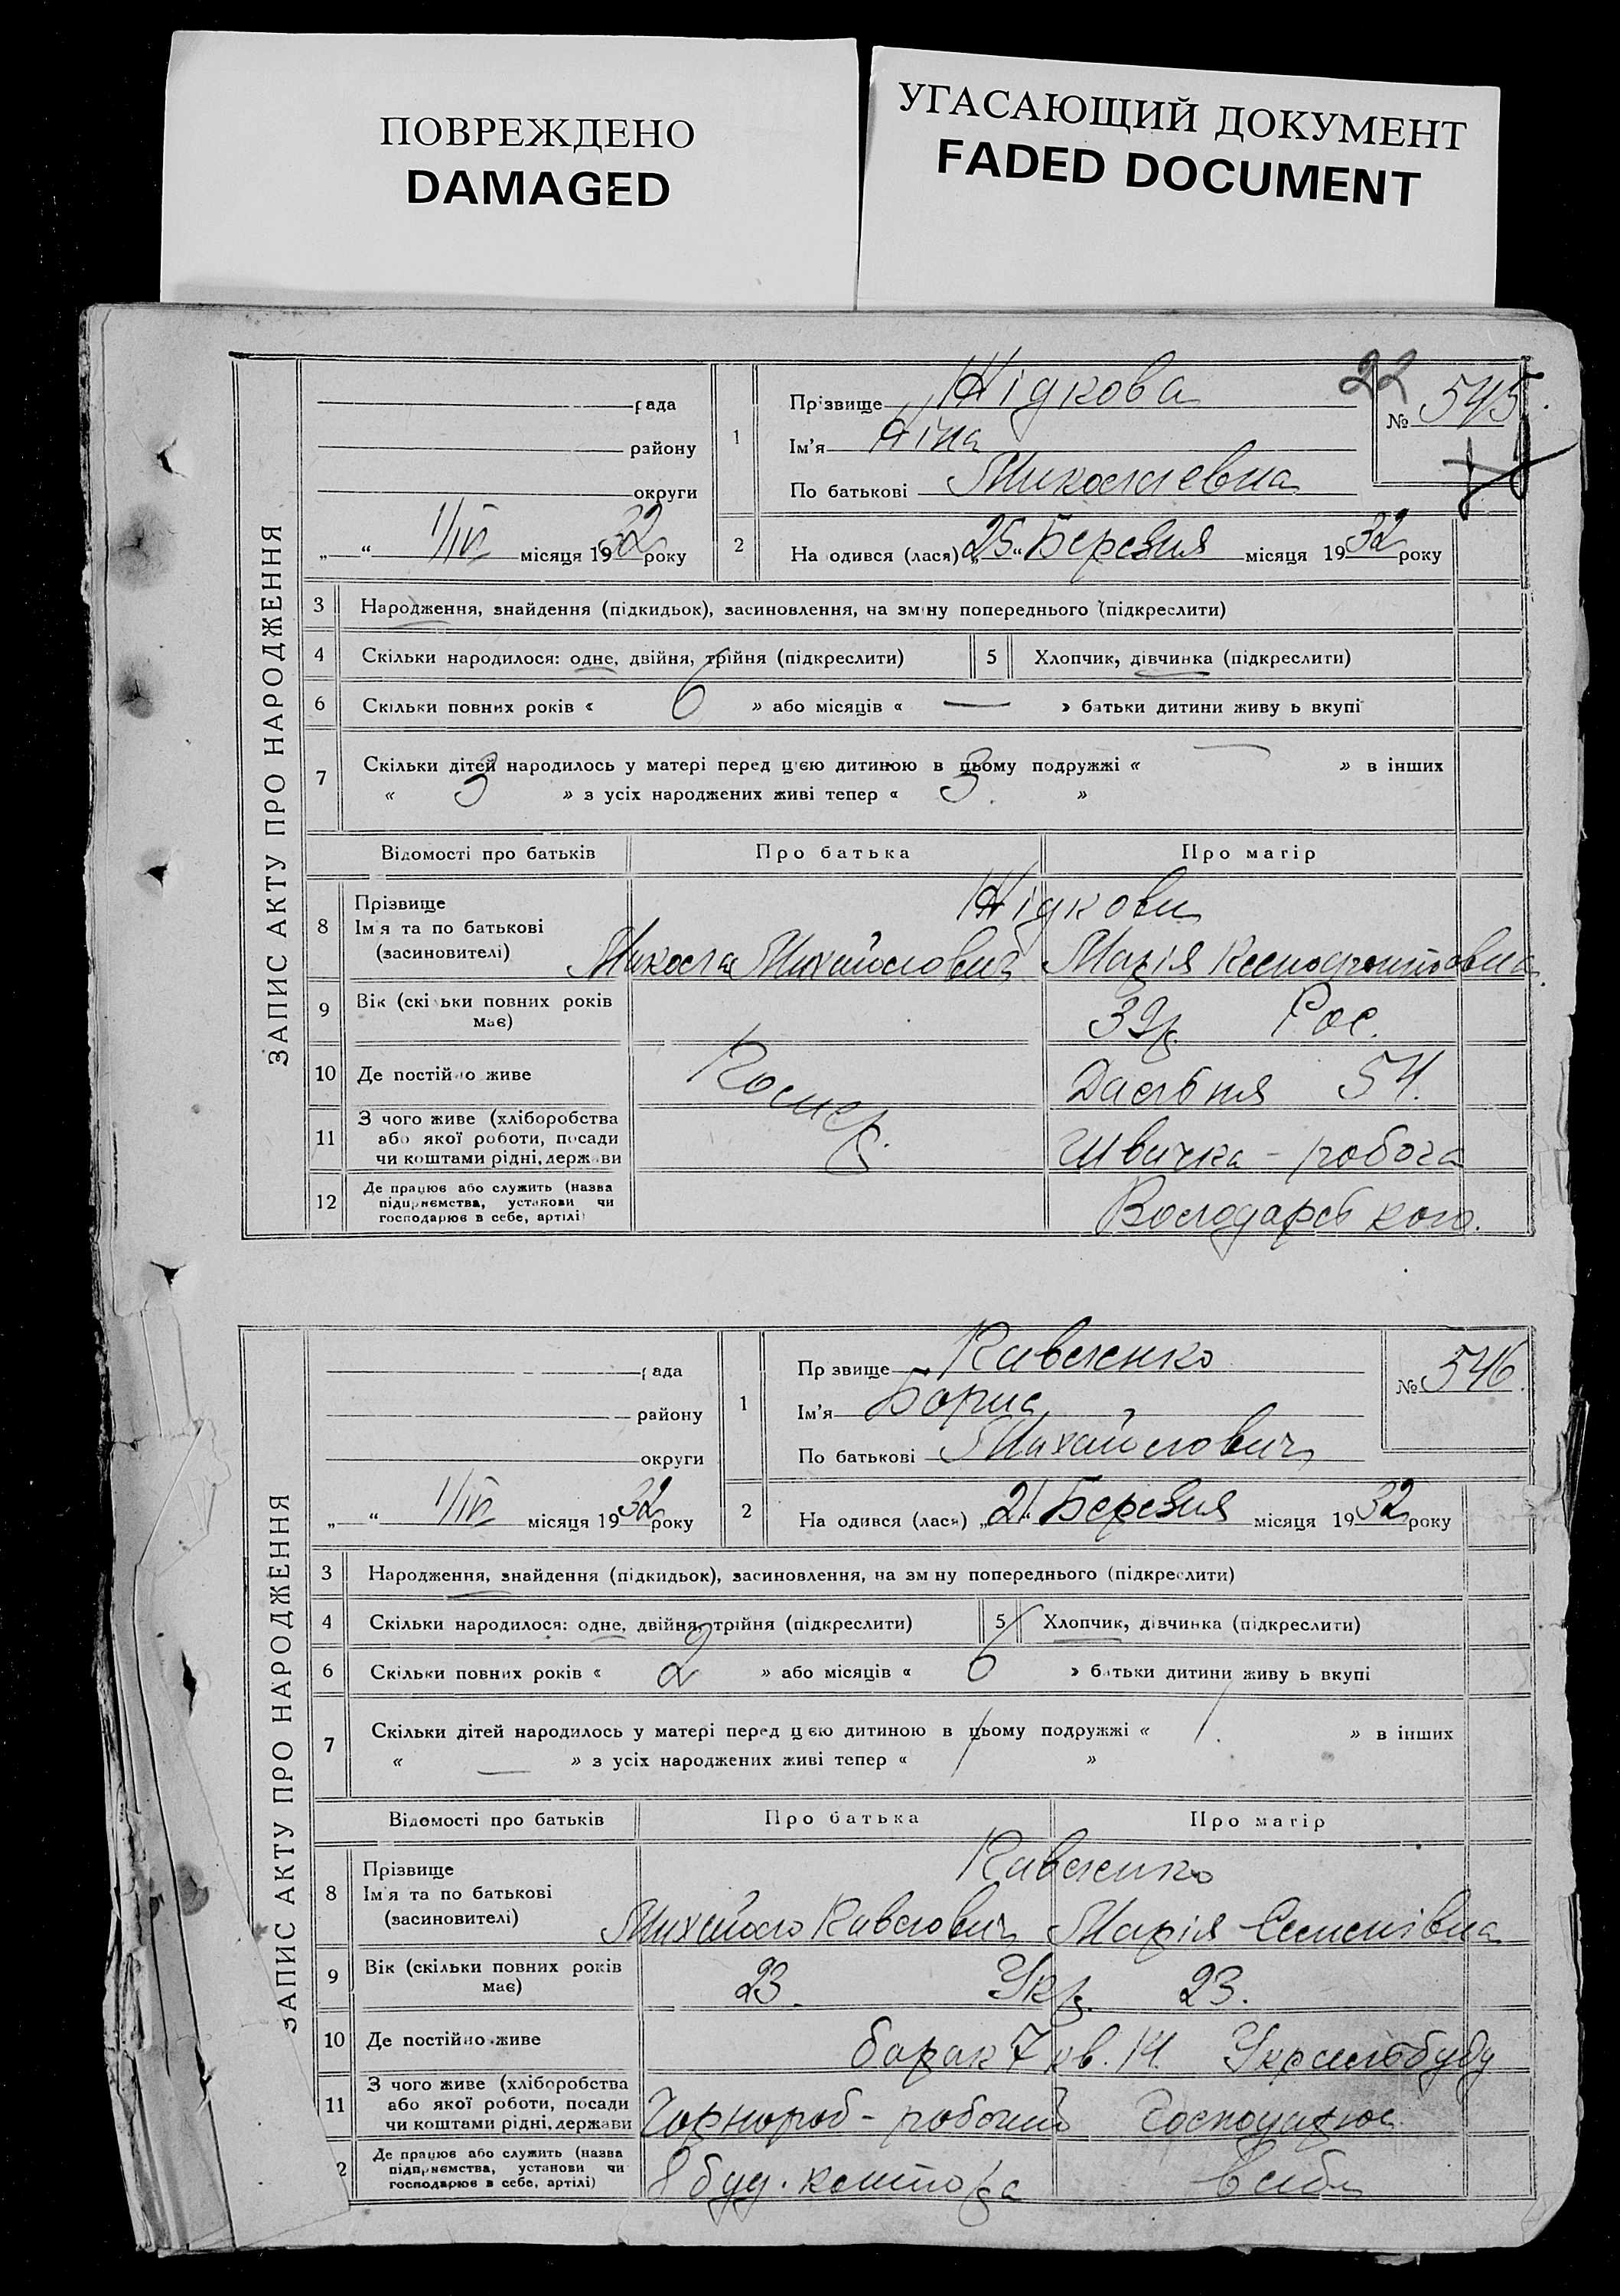 ПОВРЕЖДЕНО
DAMAGED
УГАСАЮЩИЙ ДОКУМЕНТ
FADED DOCUMENT
ЗАПИС АКТУ ПРО НАРОДЖЕННЯ
рада
району
округи
„ “ 1/IV місяця 1932 року
22
№ 545
1 Прізвище Жідкова
Ім'я Ніна
По батькові Миколаевна
2 На одився (лася) „25“ Березня місяця 1932 року
3 Народження, знайдення (підкидьок), засиновлення, на зміну попереднього (підкреслити)
4 Скільки народилося: одне, двійня, трійня (підкреслити) 5 Хлопчик, дівчинка (підкреслити)
6 Скільки повних років « 6 » або місяців « — » батьки дитини живу ь вкупі
7 Скільки дітей народилось у матері перед цією дитиною в цьому подружжі « — » в інших
« 3 » з усіх народжених живі тепер « 3. »
Відомості про батьків Про батька Про матір
8 Прізвище Жідкови
Ім'я та по батькові
(засиновителі) Микола Михайлович Марія
9 Вік (скільки повних років має) 39р. Рос.
10 Де постійно живе Помер. 54.
11 З чого живе (хліборобства
або якої роботи, посади
чи коштами рідні, держави Швачка - робоча
12 Де працює або служить (назва
підприємства, установи чи
господарює в себе, артілі)
ЗАПИС АКТУ ПРО НАРОДЖЕННЯ
рада
району
округи
„ “ 1/IV місяця 1932 року
№ 546.
1 Пр звище Павленко
Ім'я Борис
По батькові Михайлович
2 На одився (лася) „21“ Березня місяця 1932 року
3 Народження, знайдення (підкидьок), засиновлення, на зм ну попереднього (підкреслити)
4 Скільки народилося: одне, двійня, трійня (підкреслити) 5 Хлопчик, дівчинка (підкреслити)
6 Скільки повних років « 2 » або місяців « 6 » батьки дитини живу ь вкупі
7 Скільки дітей народилось у матері перед цією дитиною в цьому подружжі « 1. » в інших
« — » з усіх народжених живі тепер « 1 »
Відомості про батьків Про батька Про матір
8 Прізвище Павленко
Ім'я та по батькові
(засиновителі) Михайло Павлович Марія Семенівна
9 Вік (скільки повних років має) 23. Укр. 23.
10 Де постійно живе барак 7 кв. 14.
11 З чого живе (хліборобства
або якої роботи, посади
чи коштами рідні, держави Чорнороб - робочий Господарює
2 Де працює або служить (назва
підприємства, установи чи
господарює в себе, артілі) 8 буд. контора в себе